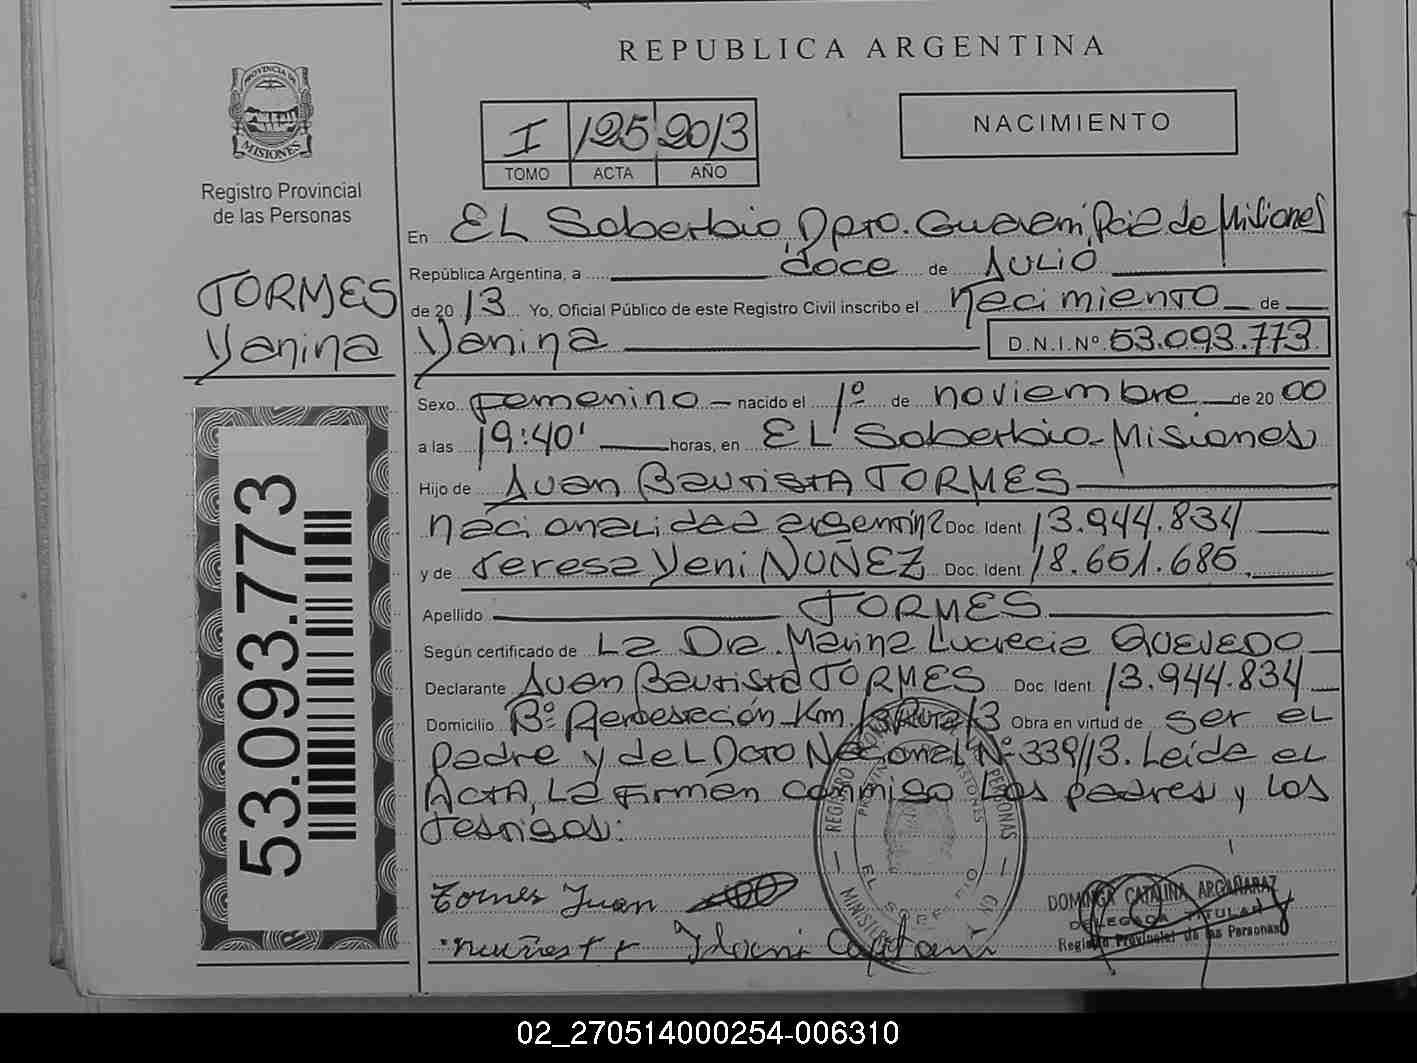 REPUBLICA ARGENTINA
PROVINCIA DE
MISIONES
Registro Provincial
de las Personas
I 125 2013
TOMO ACTA AÑO
NACIMIENTO
TORMES
Yanina
53.093.773
En EL Soberbio, Dpto. Guarani, Pcia de Misiones
República Argentina, a doce de JULIO
de 2013 Yo, Oficial Público de este Registro Civil inscribo el nacimiento de
Yanina D.N.I.Nº 53.093.773
Sexo femenino nacido el 1º de noviembre de 2000
a las 19:40' horas, en EL Soberbio-Misiones
Hijo de Juan Bautista TORMES
nacionalidad argentina Doc. Ident. 13.944.834
y de Teresa Yeni NUÑEZ Doc. Ident. 18.651.685
Apellido TORMES
Según certificado de La Dra. Marina Lucrecia QUEVEDO
Declarante Juan Bautista TORMES Doc. Ident. 13.944.834
Domicilio Bº Aerdesreción Km. 13 Ruta 13 Obra en virtud de ser el
padre y del Dcto Nacional Nº 339/13. Leida el
Acta, La firman conmigo Los padres y Los
testigos:
Tormes Juan
DOMINGA CATALINA ARGAÑARAZ
DELEGADA TITULAR
Registro Provincial de las Personas
02_270514000254-006310